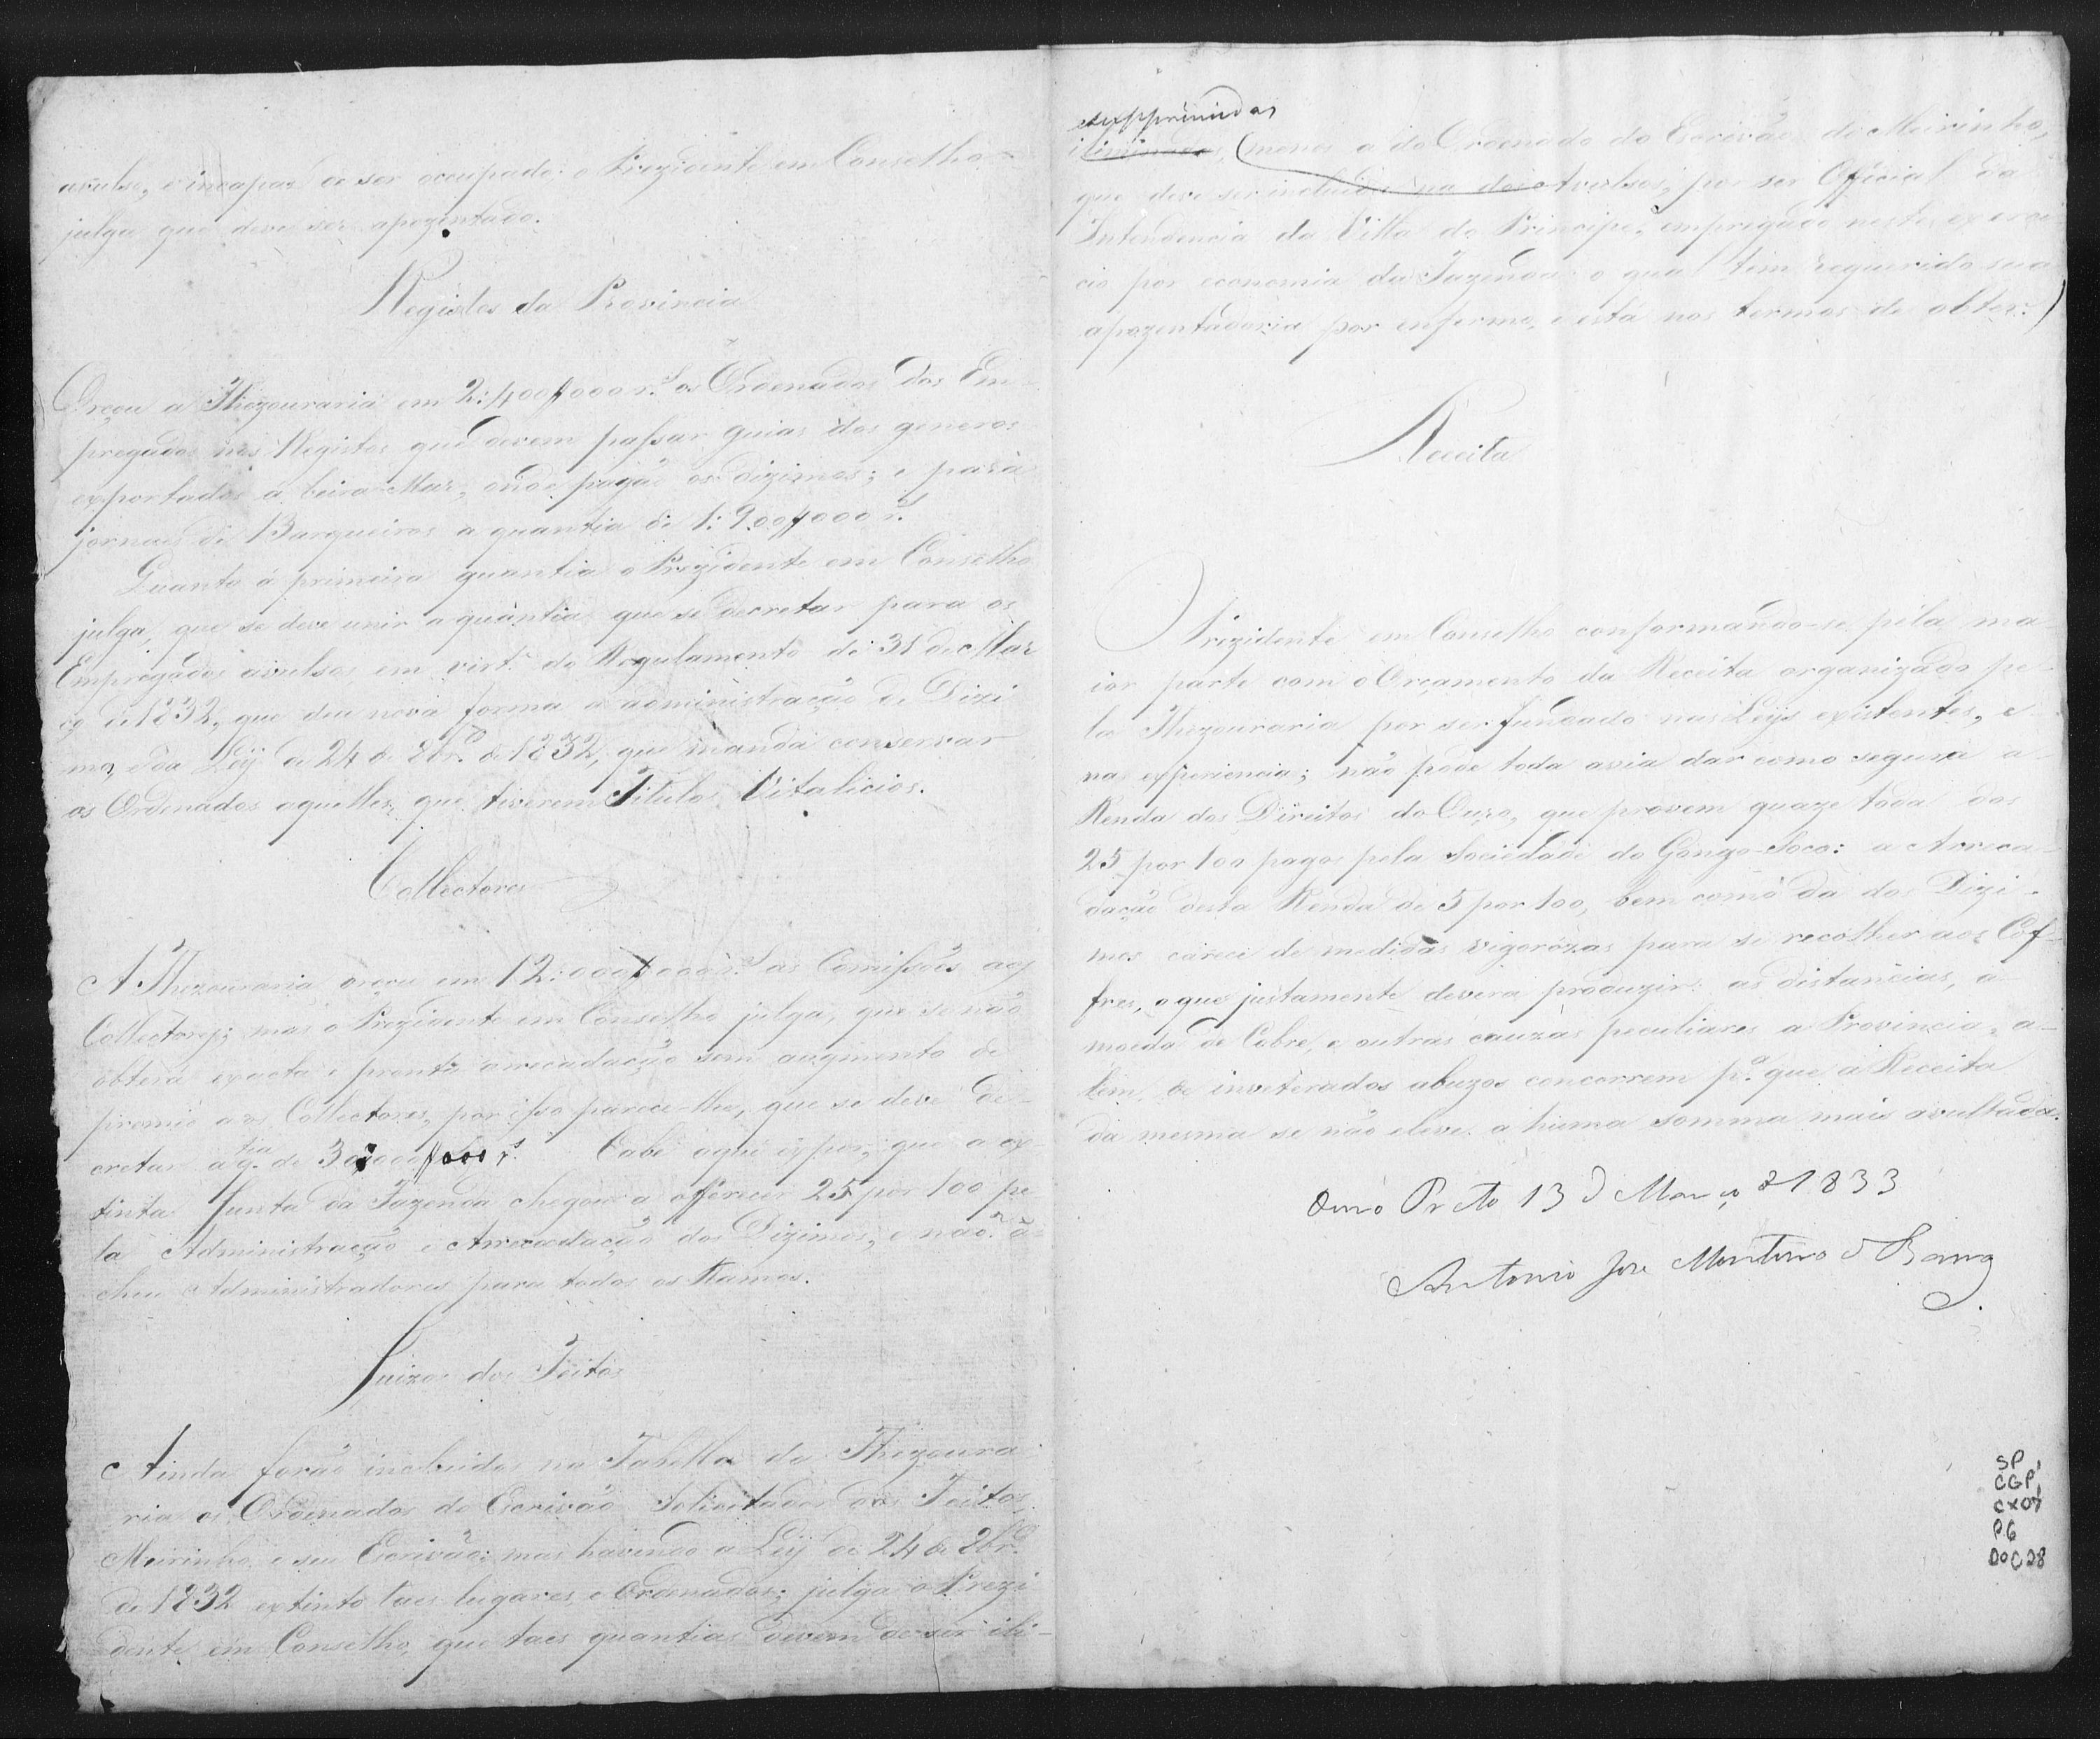 avulso, e incapaz de ser occupado: o Prezidente em Conselho
julga que deve ser apozentado.
Registos da Provincia
Orçou a Thezouraria em 2:400$000 r.s os Ordenados dos Em-
pregados nos Registos que devem passar guias dos generos
exportados a beira Mar, onde pagão os dizimos; e para
jornaes de Barqueiros a quantia de 1:900$000 r.s
Quanto á primeira quantia o Prezidente em Conselho
julga, que se deve unir a quantia que se decretar para os
Empregados avulsos em virt.e do Regulamento de 31 de Mar
ço de 1832, que deu nova forma a administração de Dizi
mos, e da Ley de 24 de 8br.o de 1832, que manda conservar
os Ordenados aquelles, que tiverem Titulos Vitalicios.
Collectores
A Thezouraria orçou em 12:000$000 r.s as Comissões aos
Collectores; mas o Prezidente em Conselho julga, que se não
obterá exacta e pronta arrecadação sem augmento de
premio aos Collectores, por isso parece-lhe, que se deve de-
cretar a q.tia de 30:000$000 r.s Cabe aqui expor, que a ex-
tinta Junta da Fazenda chegou a offerecer 25 por 100 pe
la Administração e Arrecadação dos Dizimos, e não a-
chou Administradores para todos os Ramos.
Juizos dos Feitos
Ainda forão incluidos na Tabella da Thezoura-
ria os Ordenados do Escrivão Solicitador dos Feitos,
Meirinho, e seu Escrivão; mas havendo a Ley de 24 de 8br.o
de 1832 extinto taes lugares, e Ordenados; julga o Prezi
dente em Conselho, que taes quantias devem de ser ili-
supprimidas
iliminadas, (menos a do Ordenado do Escrivão do Meirinho,
que deve ser incluido na dos Avulsos, por ser Official da
Intendencia da Villa do Principe, empregado neste exerci
cio por economia da Fazenda o qual tem requerido sua
apozentadoria por enfermo, e está nos termos de obter.)
Receita
O Prezidente em Conselho conformando-se pela ma
ior parte com o Orçamento da Receita organizado pe-
la Thezouraria por ser fundado nas Leys existentes, e
na experiencia; não pode toda avia dar como segura a
Renda dos Direitos do Ouro, que provem quaze toda dos
25 por 100 pagos pela Sociedade do Gongo-Soco: a Arreca-
dação desta Renda de 5 por 100, bem como da dos Dizi-
mos carece de medidas vigorozas para se recolher aos Cof-
fres, o que justamente devera produzir: as distancias, a
moeda de Cobre, e outras cauzas peculiares a Provincia, a-
lem de inveterados abuzos concorrem p.a que a Receita
da mesma se não eleve a huma somma mais avultada.
Ouro Preto 13 d Março d 1833
Antonio Jose Monteiro d Barros
SP,
CGP,
CX07
P6
DOC28